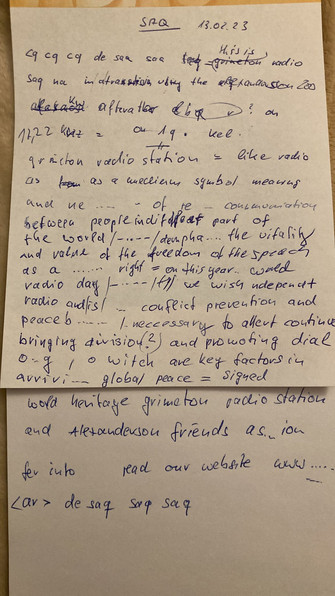 SAQ 13.02.23
cq cq cq de saq saq this is grimeton radio
saq in a transmission using the alexanderson 200
kHz alternator ? on
17,22 kHz =
grimeton radio station = like radio
as as a medium symbol meaning
and ne ..... - of re - communication
between people in different part of
the world /-.-.-/ dempha... the vitality
and value of the freedom of the speach
as a ...... right = on this year world
radio day /-....-/ we wish independent
radio and - conflict prevention and
peaceb ..... / neccessary to allert continue
bringing division(?) and promoting dial
o-g , o witch are key factors in
arrivi--- global peace = signed
world heritage grimeton radio station
and Alexanderson friends as... ion
for into read our website www .....
<ar> de saq saq saq